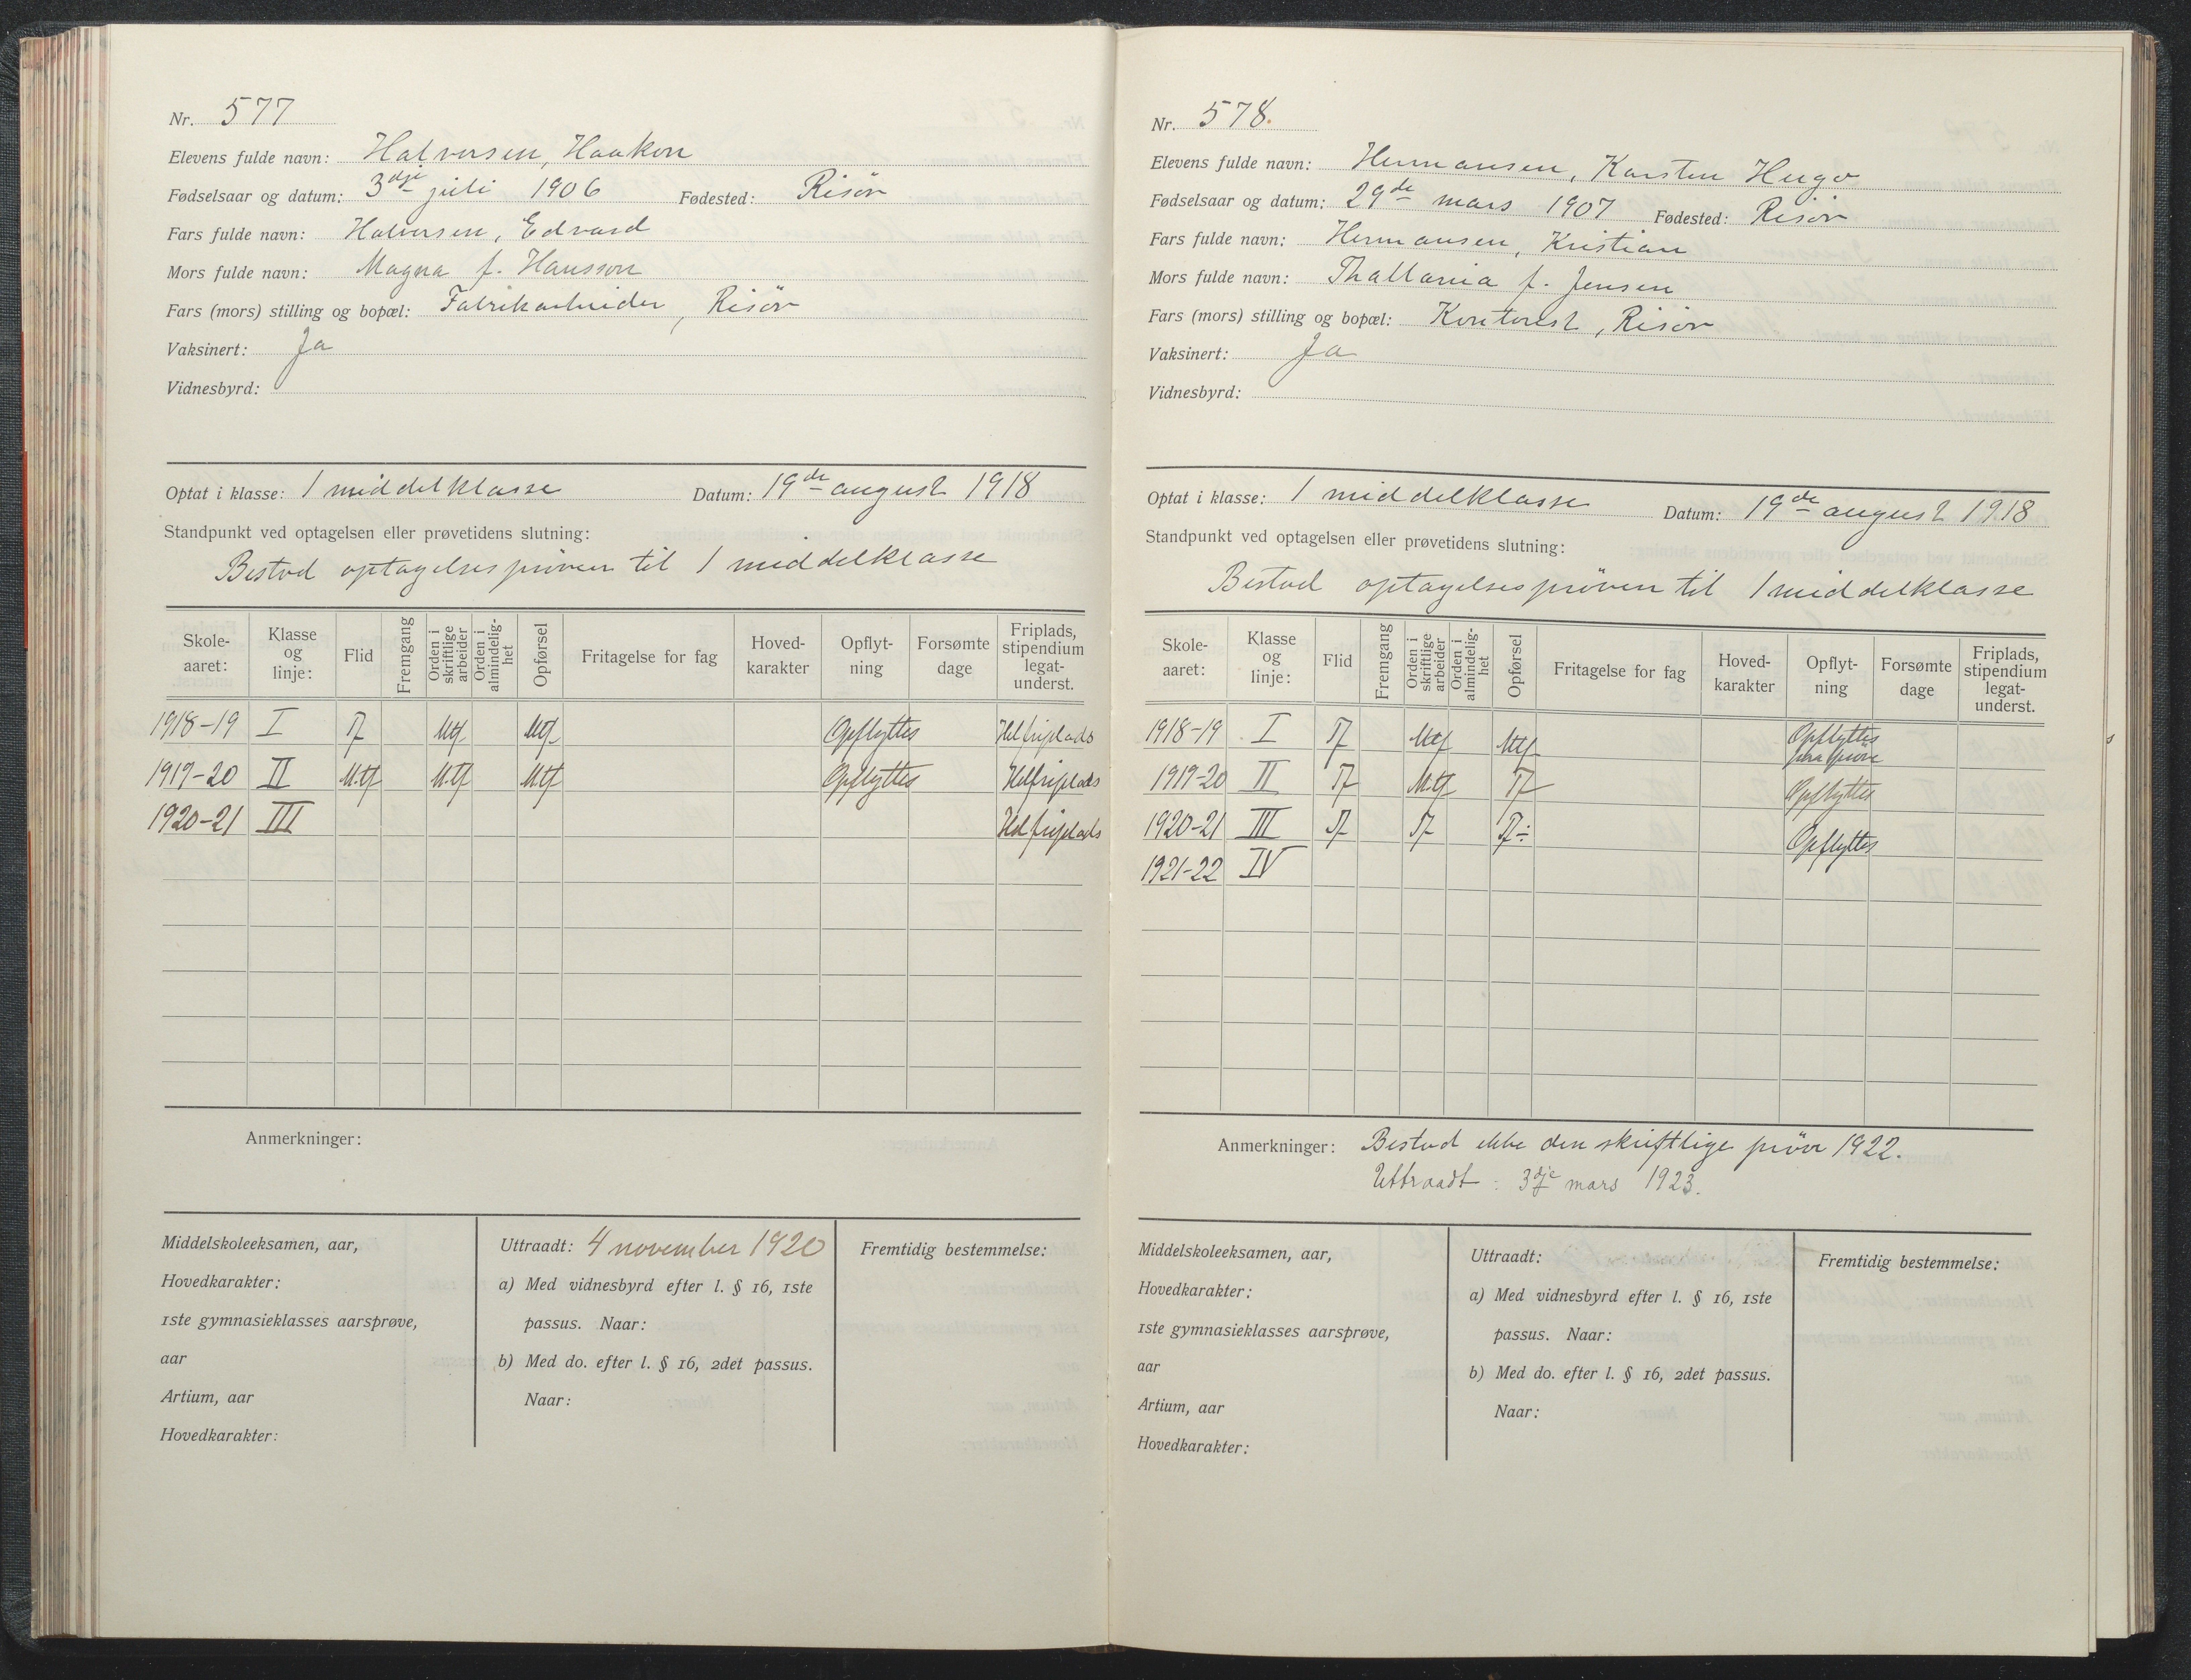 Nr. 577
Elevens fulde navn: Halvorsen, Haakon
Fødselsaar og datum: 3dje juli 1906 Fødested: Risör
Fars fulde navn: Halvorsen, Edvard
Mors fulde navn: Magna f. Hansson
Fars (mors) stilling og bopæl: Fabrikarbeider, Risör
Vaksinert: Ja
Vidnesbyrd:
Optat i klasse: 1 middelklasse Datum: 19de august 1918
Standpunkt ved optagelsen eller prøvetidens slutning:
Bestod optagelsespröven til 1 middelklasse
Skole-aaret: Klasse og linje: Flid Fremgang Orden i skriftlige arbeider Orden i almindelig-het Opførsel Fritagelse for fag Hoved-karakter Opflyt-ning Forsømte dage Friplads, stipendium legat-underst.
1918-19 I Mtf Mtf Opflyttes Hel friplads
1919-20 II Mtf Mtf Mtf Opflyttes Hel friplads
1920-21 III Hel friplads
Anmerkninger:
Middelskoleeksamen, aar,
Hovedkarakter:
1ste gymnasieklasses aarsprøve,
aar
Artium, aar
Hovedkarakter:
Uttraadt: 4 november 1920
a) Med vidnesbyrd efter l. § 16, 1ste
passus. Naar:
b) Med do. efter l. § 16, 2det passus.
Naar:
Fremtidig bestemmelse:
Nr. 578.
Elevens fulde navn: Hermansen, Karsten Hugo
Fødselsaar og datum: 29de mars 1907 Fødested: Risör
Fars fulde navn: Hermansen, Kristian
Mors fulde navn: Thallania f. Jensen
Fars (mors) stilling og bopæl: Kontorist, Risör
Vaksinert: Ja
Vidnesbyrd:
Optat i klasse: 1 middelklasse Datum: 19de august 1918
Standpunkt ved optagelsen eller prøvetidens slutning:
Bestod optagelsespröven til 1 middelklasse
Skole-aaret: Klasse og linje: Flid Fremgang Orden i skriftlige arbeider Orden i almindelig-het Opførsel Fritagelse for fag Hoved-karakter Opflyt-ning Forsømte dage Friplads, stipendium legat-underst.
1918-19 I Mtf Mtf Opflyttes
1919-20 II Mtf Opflyttes
1920-21 III Opflyttes
1921-22 IV
Anmerkninger: Bestod ikke den skriftlige pröve 1922.
Uttraadt: 3dje mars 1923.
Middelskoleeksamen, aar,
Hovedkarakter:
1ste gymnasieklasses aarsprøve,
aar
Artium, aar
Hovedkarakter:
Uttraadt:
a) Med vidnesbyrd efter l. § 16, 1ste
passus. Naar:
b) Med do. efter l. § 16, 2det passus.
Naar:
Fremtidig bestemmelse: